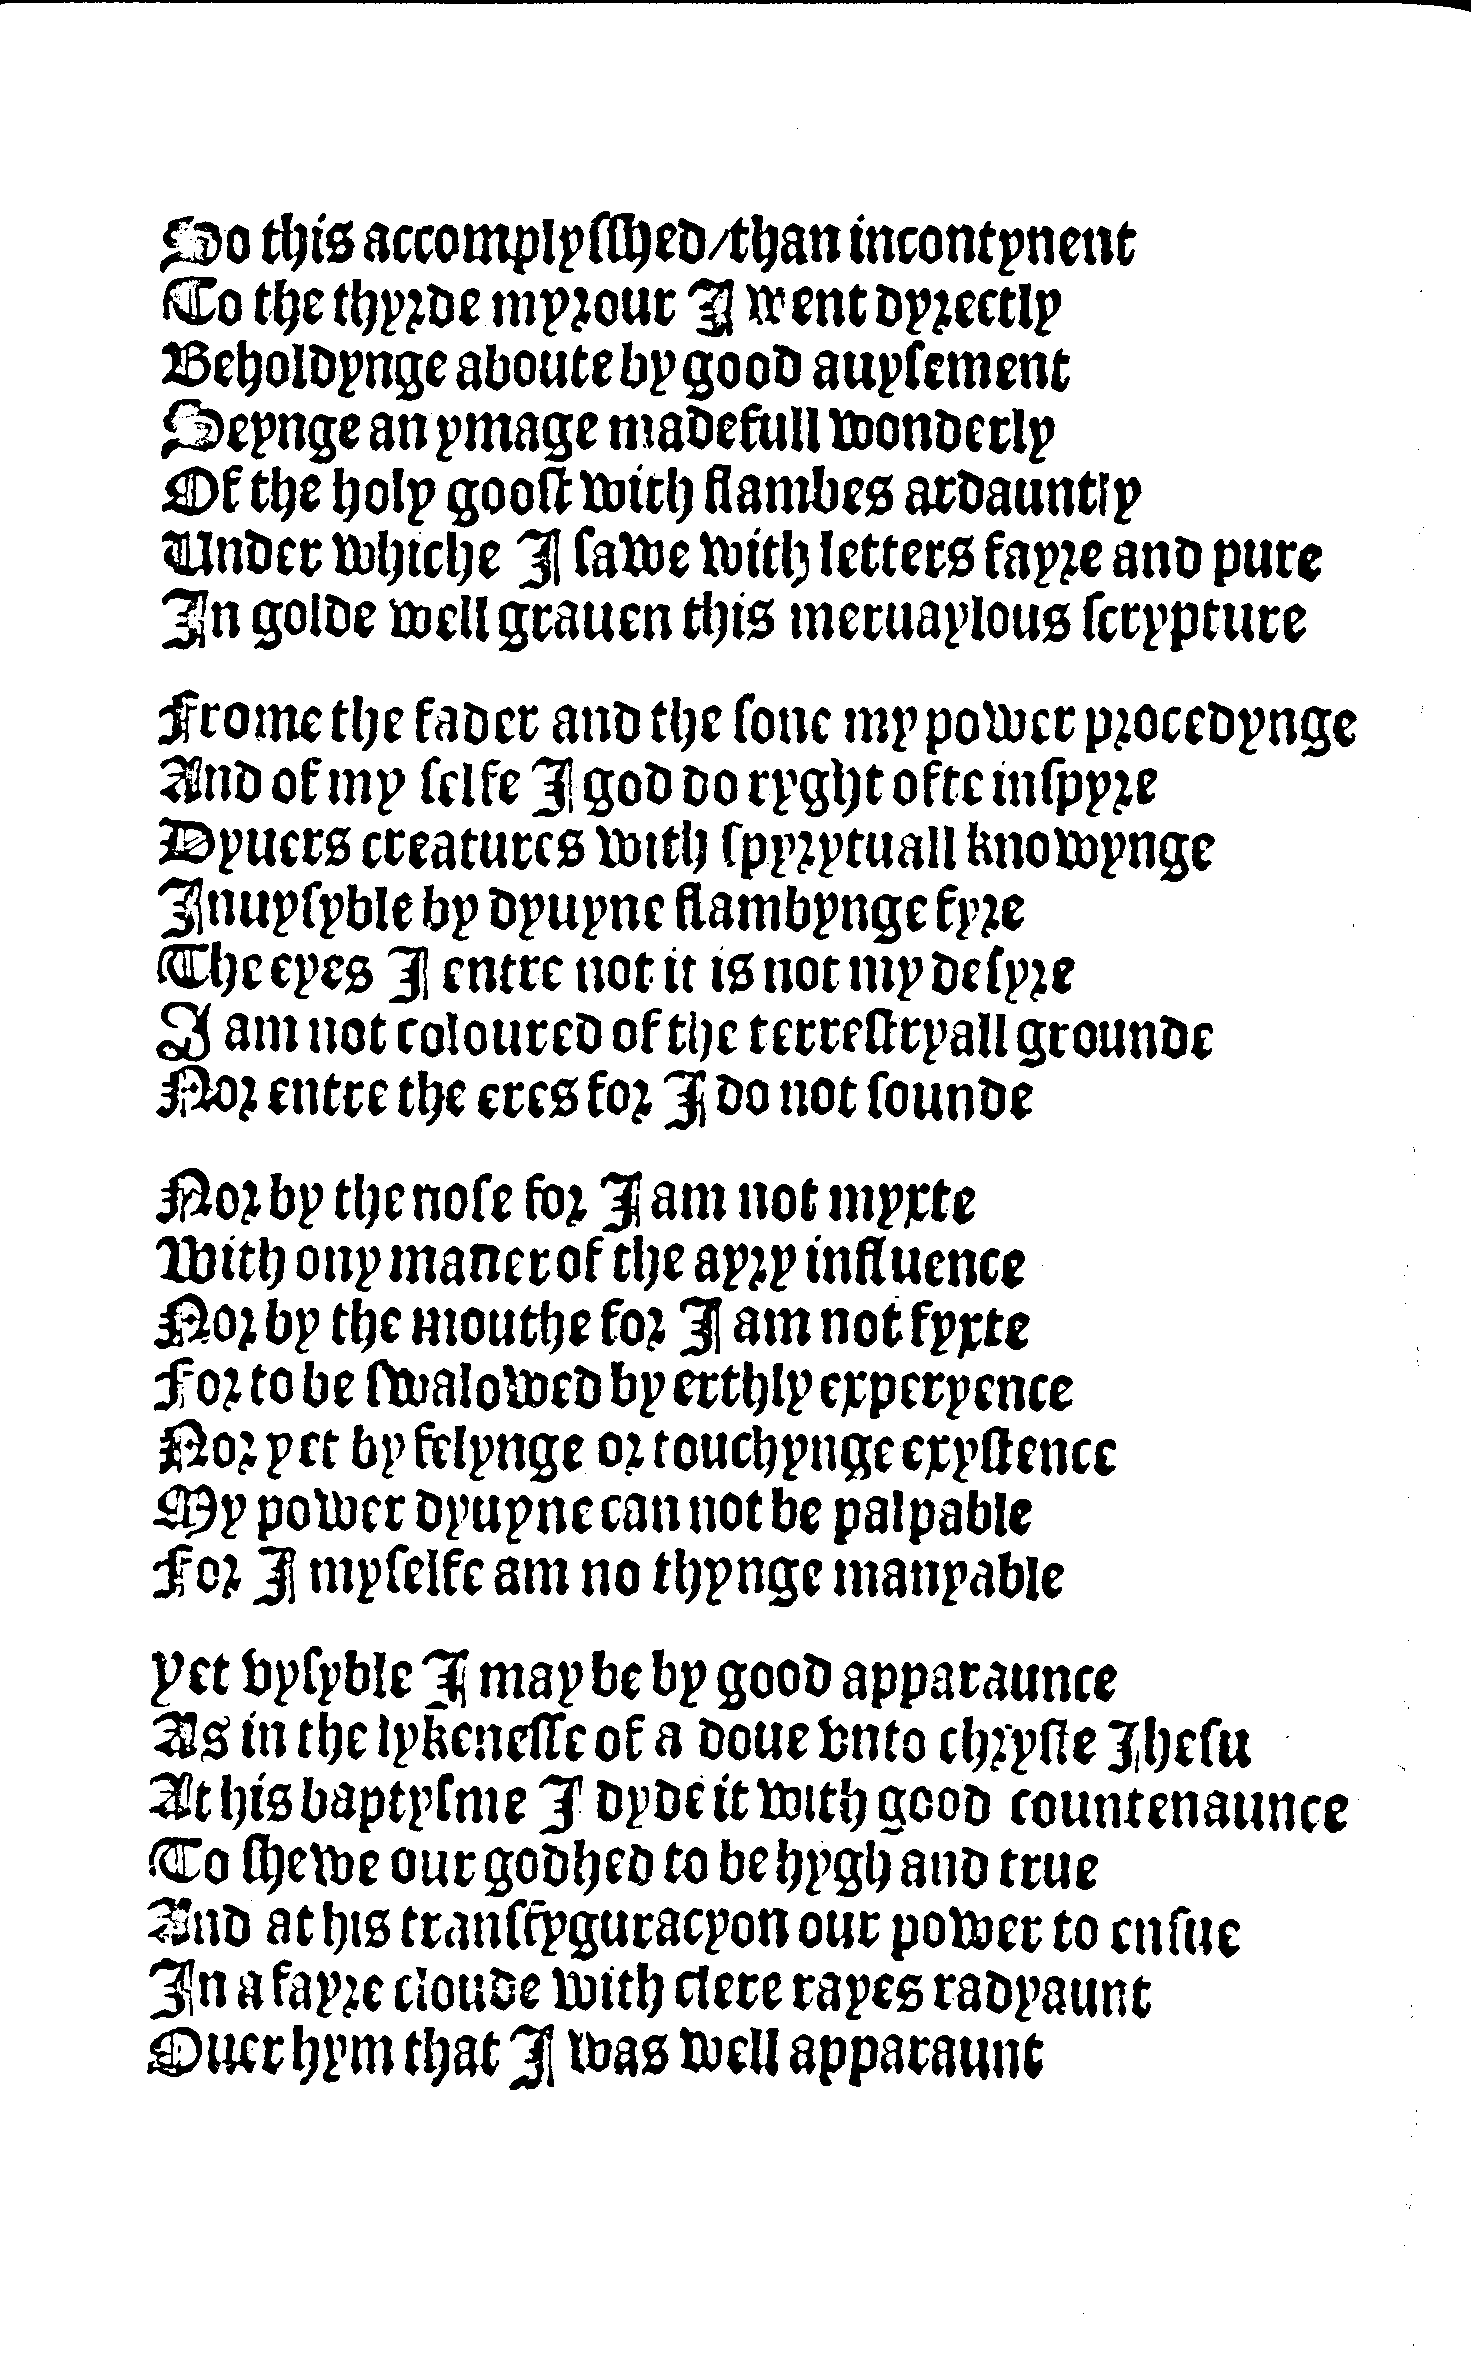 So this accomplyſſhed/than incontynent
To the thyꝛde myꝛour I went dyꝛectly
Beholdynge aboute by good auyſement
Seynge an ymage made full wonderly
Of the holy gooſt with flambes ardauntly
Under whiche I ſawe with letters fayꝛe and pure
In golde well grauen this meruaylous ſcrypture

Frome the fader and the ſone my power pꝛocedynge
And of my ſelfe I god do ryght ofte inſpyꝛe
Dyuers creatures with ſpyꝛytuall knowynge
Inuyſyble by dyuyne flambynge fyꝛe
The eyes I entre not it is not my deſyꝛe
I am not coloured of the terreſtryall grounde
Noꝛ entre the eres foꝛ I do not ſounde

Noꝛ by the noſe foꝛ I am not myxte
With ony maner of the ayꝛy influence
Noꝛ by the mouthe foꝛ I am not fyxte
Foꝛ to be ſwalowed by erthly experyence
Noꝛ yet by felynge oꝛ touchynge exyſtence
My power dyuyne can not be palpable
Foꝛ I myſelfe am no thynge manyable

Yet vyſyble I may be by good apparaunce
As in the lykeneſſe of a doue vnto chꝛyſte Jheſu
At his baptyſme I dyde it with good countenaunce
To ſhewe our godhed to be hygh and true
And at his tranſfyguracyon our power to enſue
In a fayꝛe cloude with clere rayes radyaunt
Ouer hym that I was well apparaunt